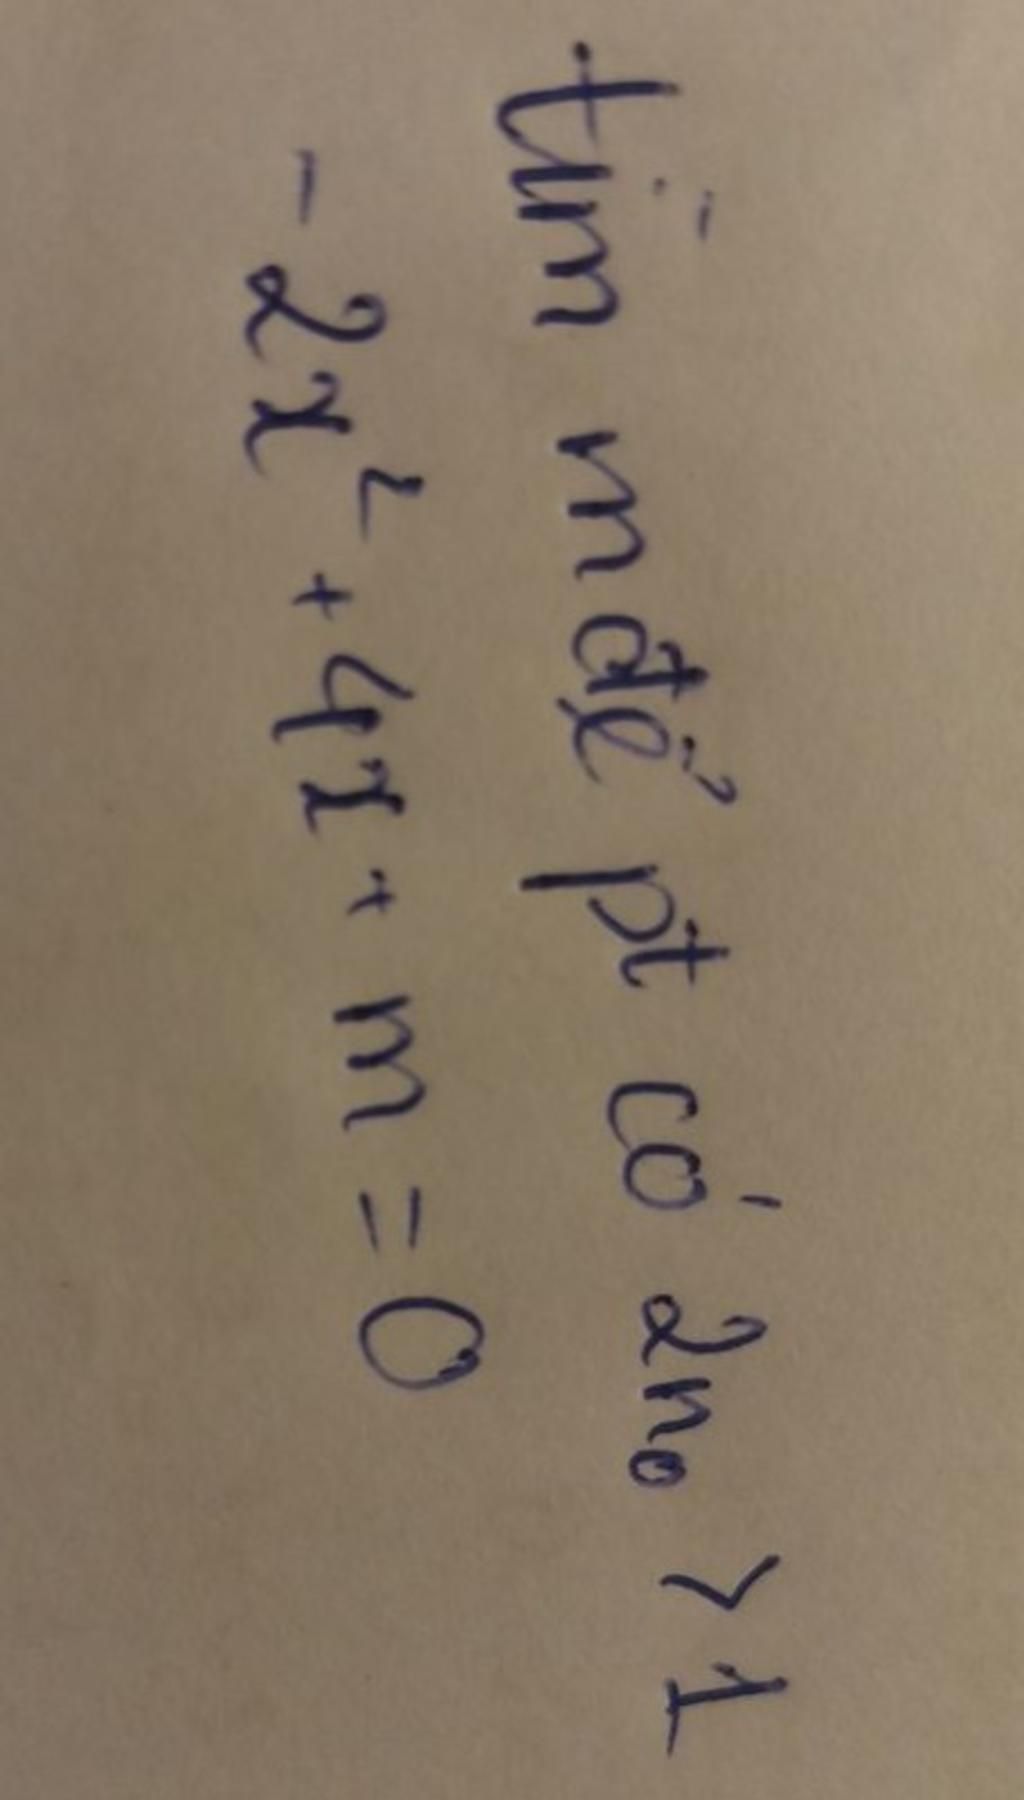 tìm m để pt có 2no > 1
- 2x² + 4x + m = 0